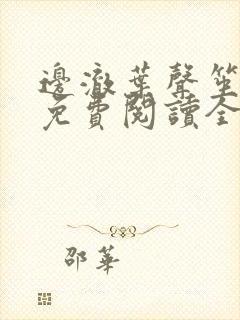 邊澈葉聲笙
免費閱讀全
邵華